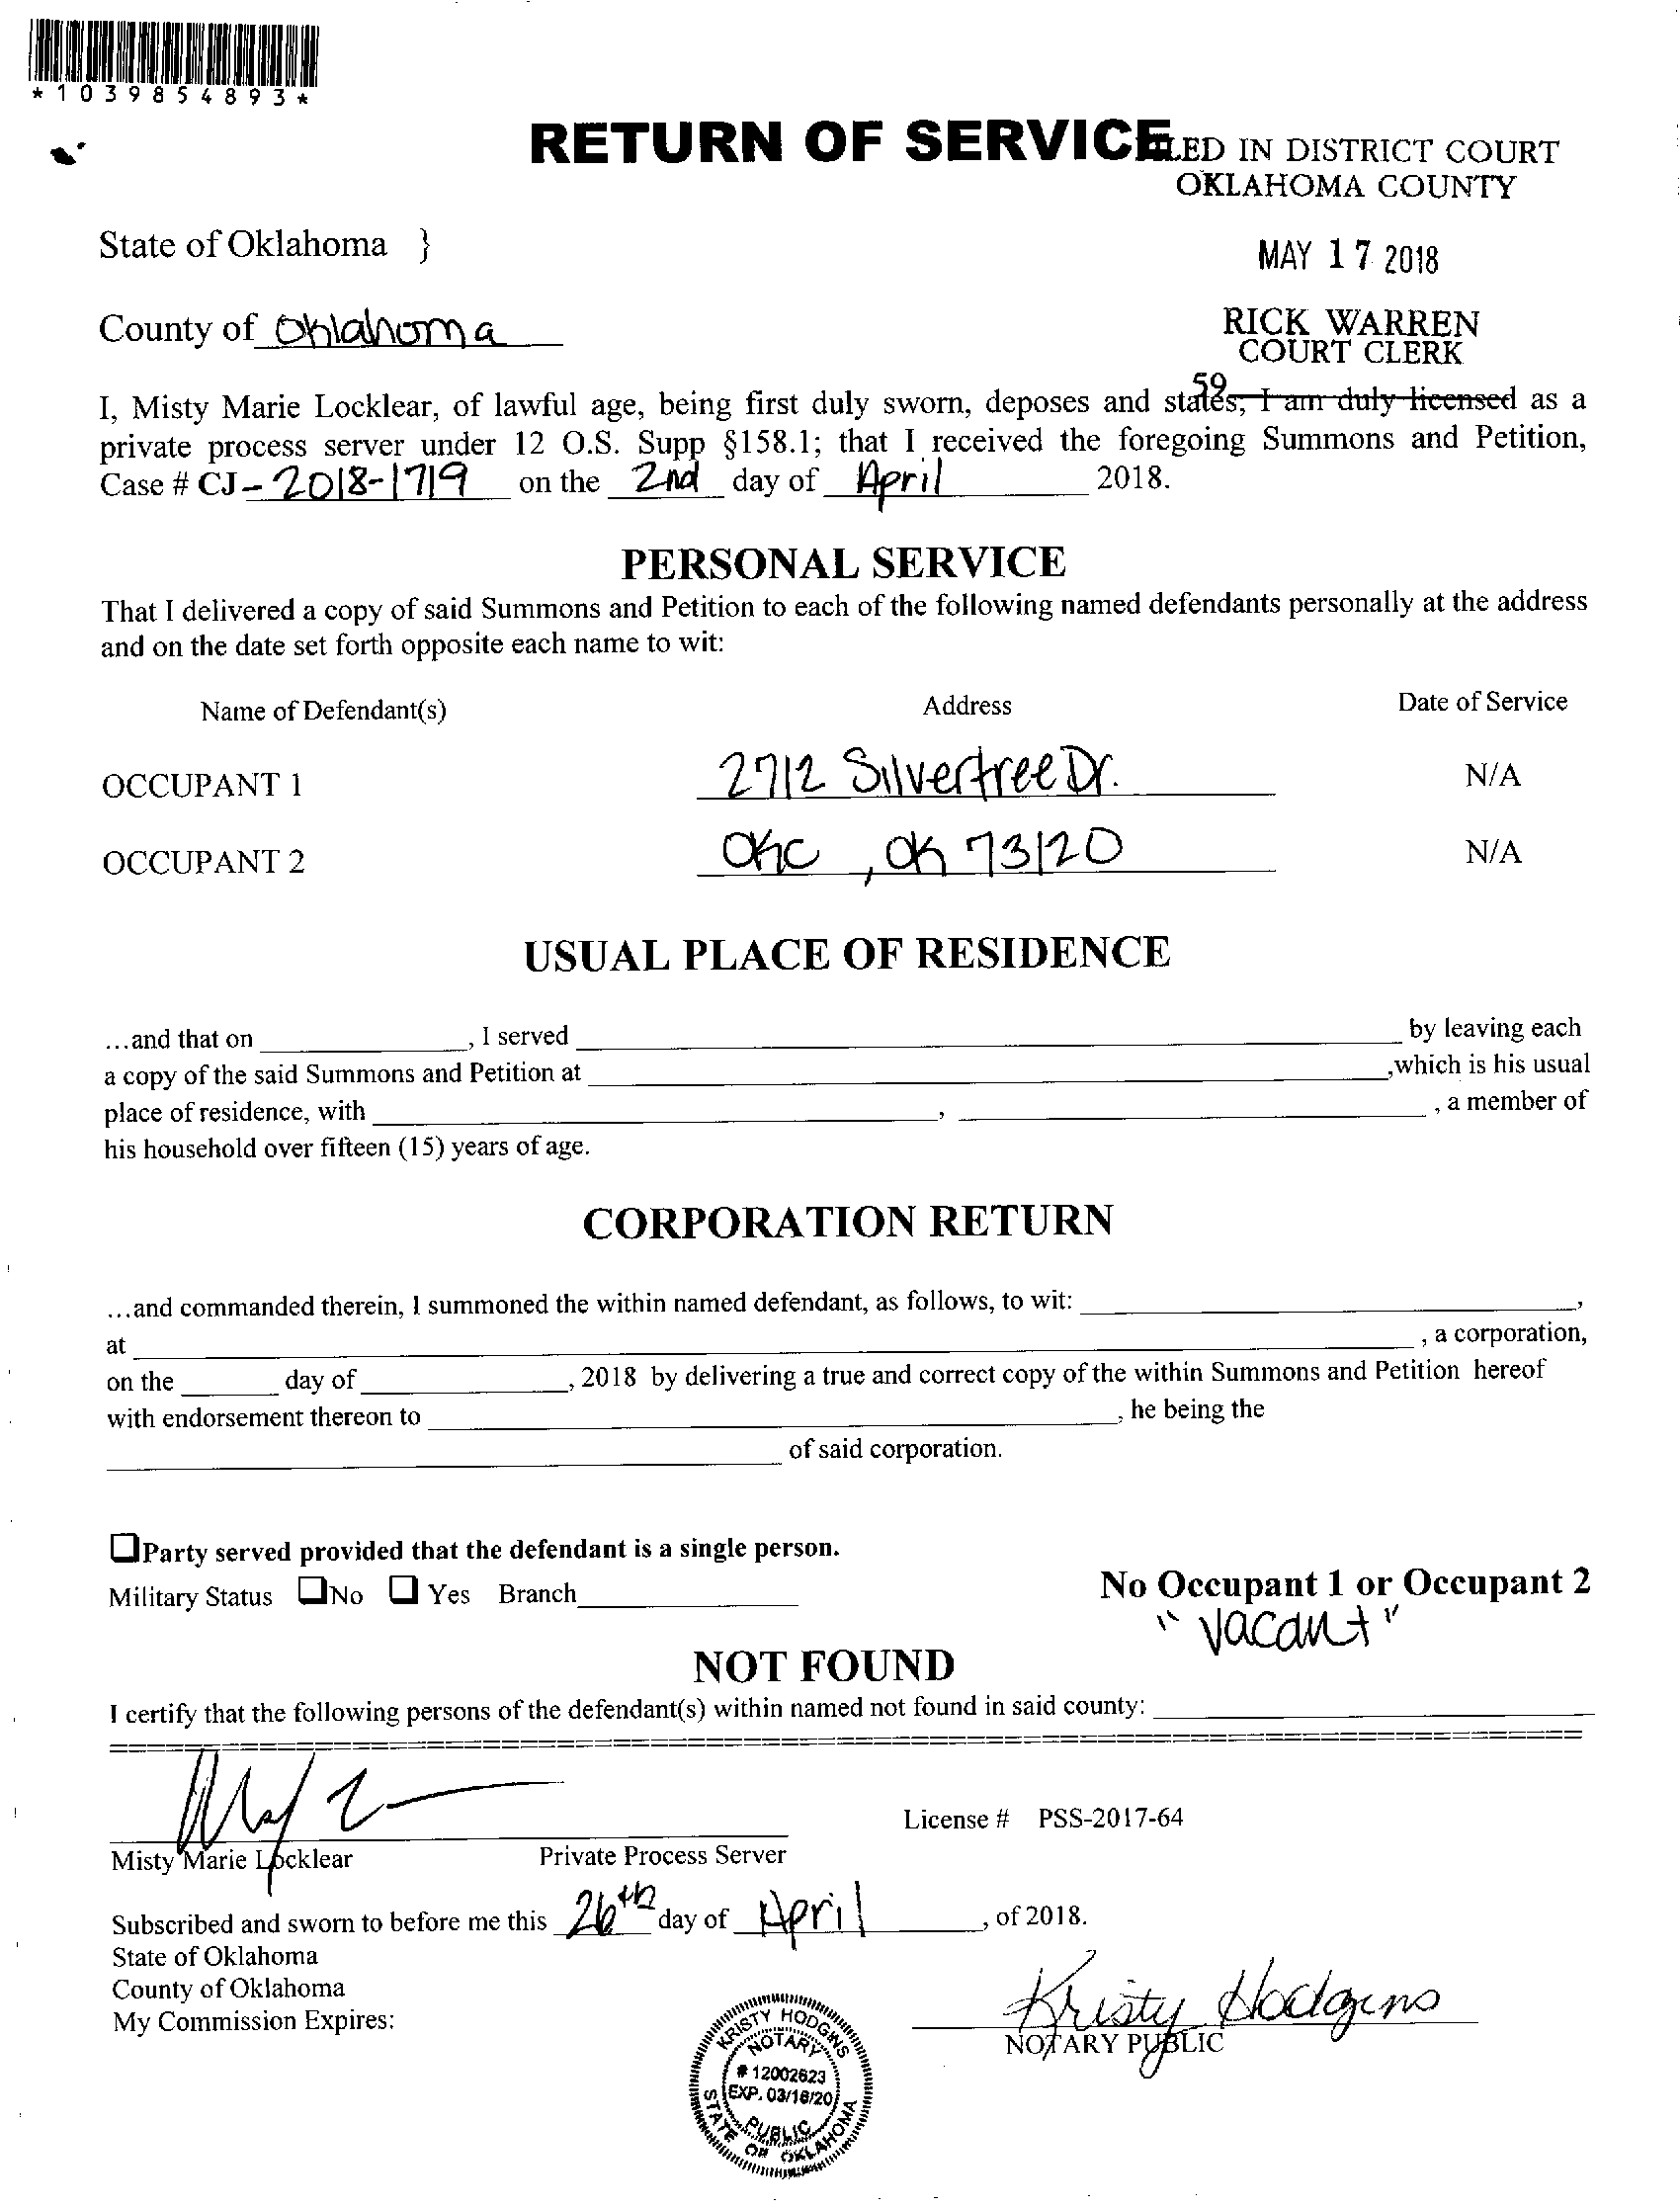 *1039854893*
RETURN OF SERVICE
LED IN DISTRICT COURT
OKLAHOMA COUNTY
State of Oklahoma }
MAY 17 2018
County of Oklahoma
RICK WARREN
COURT CLERK
59
I, Misty Marie Locklear, of lawful age, being first duly sworn, deposes and states, I am duly licensed as a
private process server under 12 O.S. Supp §158.1; that I received the foregoing Summons and Petition,
Case # CJ-2018-1719 on the 2nd day of April 2018.
PERSONAL SERVICE
That I delivered a copy of said Summons and Petition to each of the following named defendants personally at the address
and on the date set forth opposite each name to wit:
Name of Defendant(s) Address Date of Service
OCCUPANT 1 2712 Silvertree Dr. N/A
OCCUPANT 2 OKC, OK 73120 N/A
USUAL PLACE OF RESIDENCE
...and that on ____, I served ____ by leaving each
a copy of the said Summons and Petition at ____,which is his usual
place of residence, with ____, ____, a member of
his household over fifteen (15) years of age.
CORPORATION RETURN
...and commanded therein, I summoned the within named defendant, as follows, to wit: ____,
at ____, a corporation,
on the ____ day of ____, 2018 by delivering a true and correct copy of the within Summons and Petition hereof
with endorsement thereon to ____, he being the
____ of said corporation.
☐Party served provided that the defendant is a single person.
Military Status ☐No ☐ Yes Branch____
No Occupant 1 or Occupant 2
"vacant"
NOT FOUND
I certify that the following persons of the defendant(s) within named not found in said county: ____
License # PSS-2017-64
Misty Marie Locklear Private Process Server
Subscribed and sworn to before me this 26th day of April, of 2018.
State of Oklahoma
County of Oklahoma
My Commission Expires:
Kristy Hodgins
NOTARY PUBLIC
KRISTY HODGINS
NOTARY
# 12002623
EXP. 03/16/20
PUBLIC
STATE OF OKLAHOMA